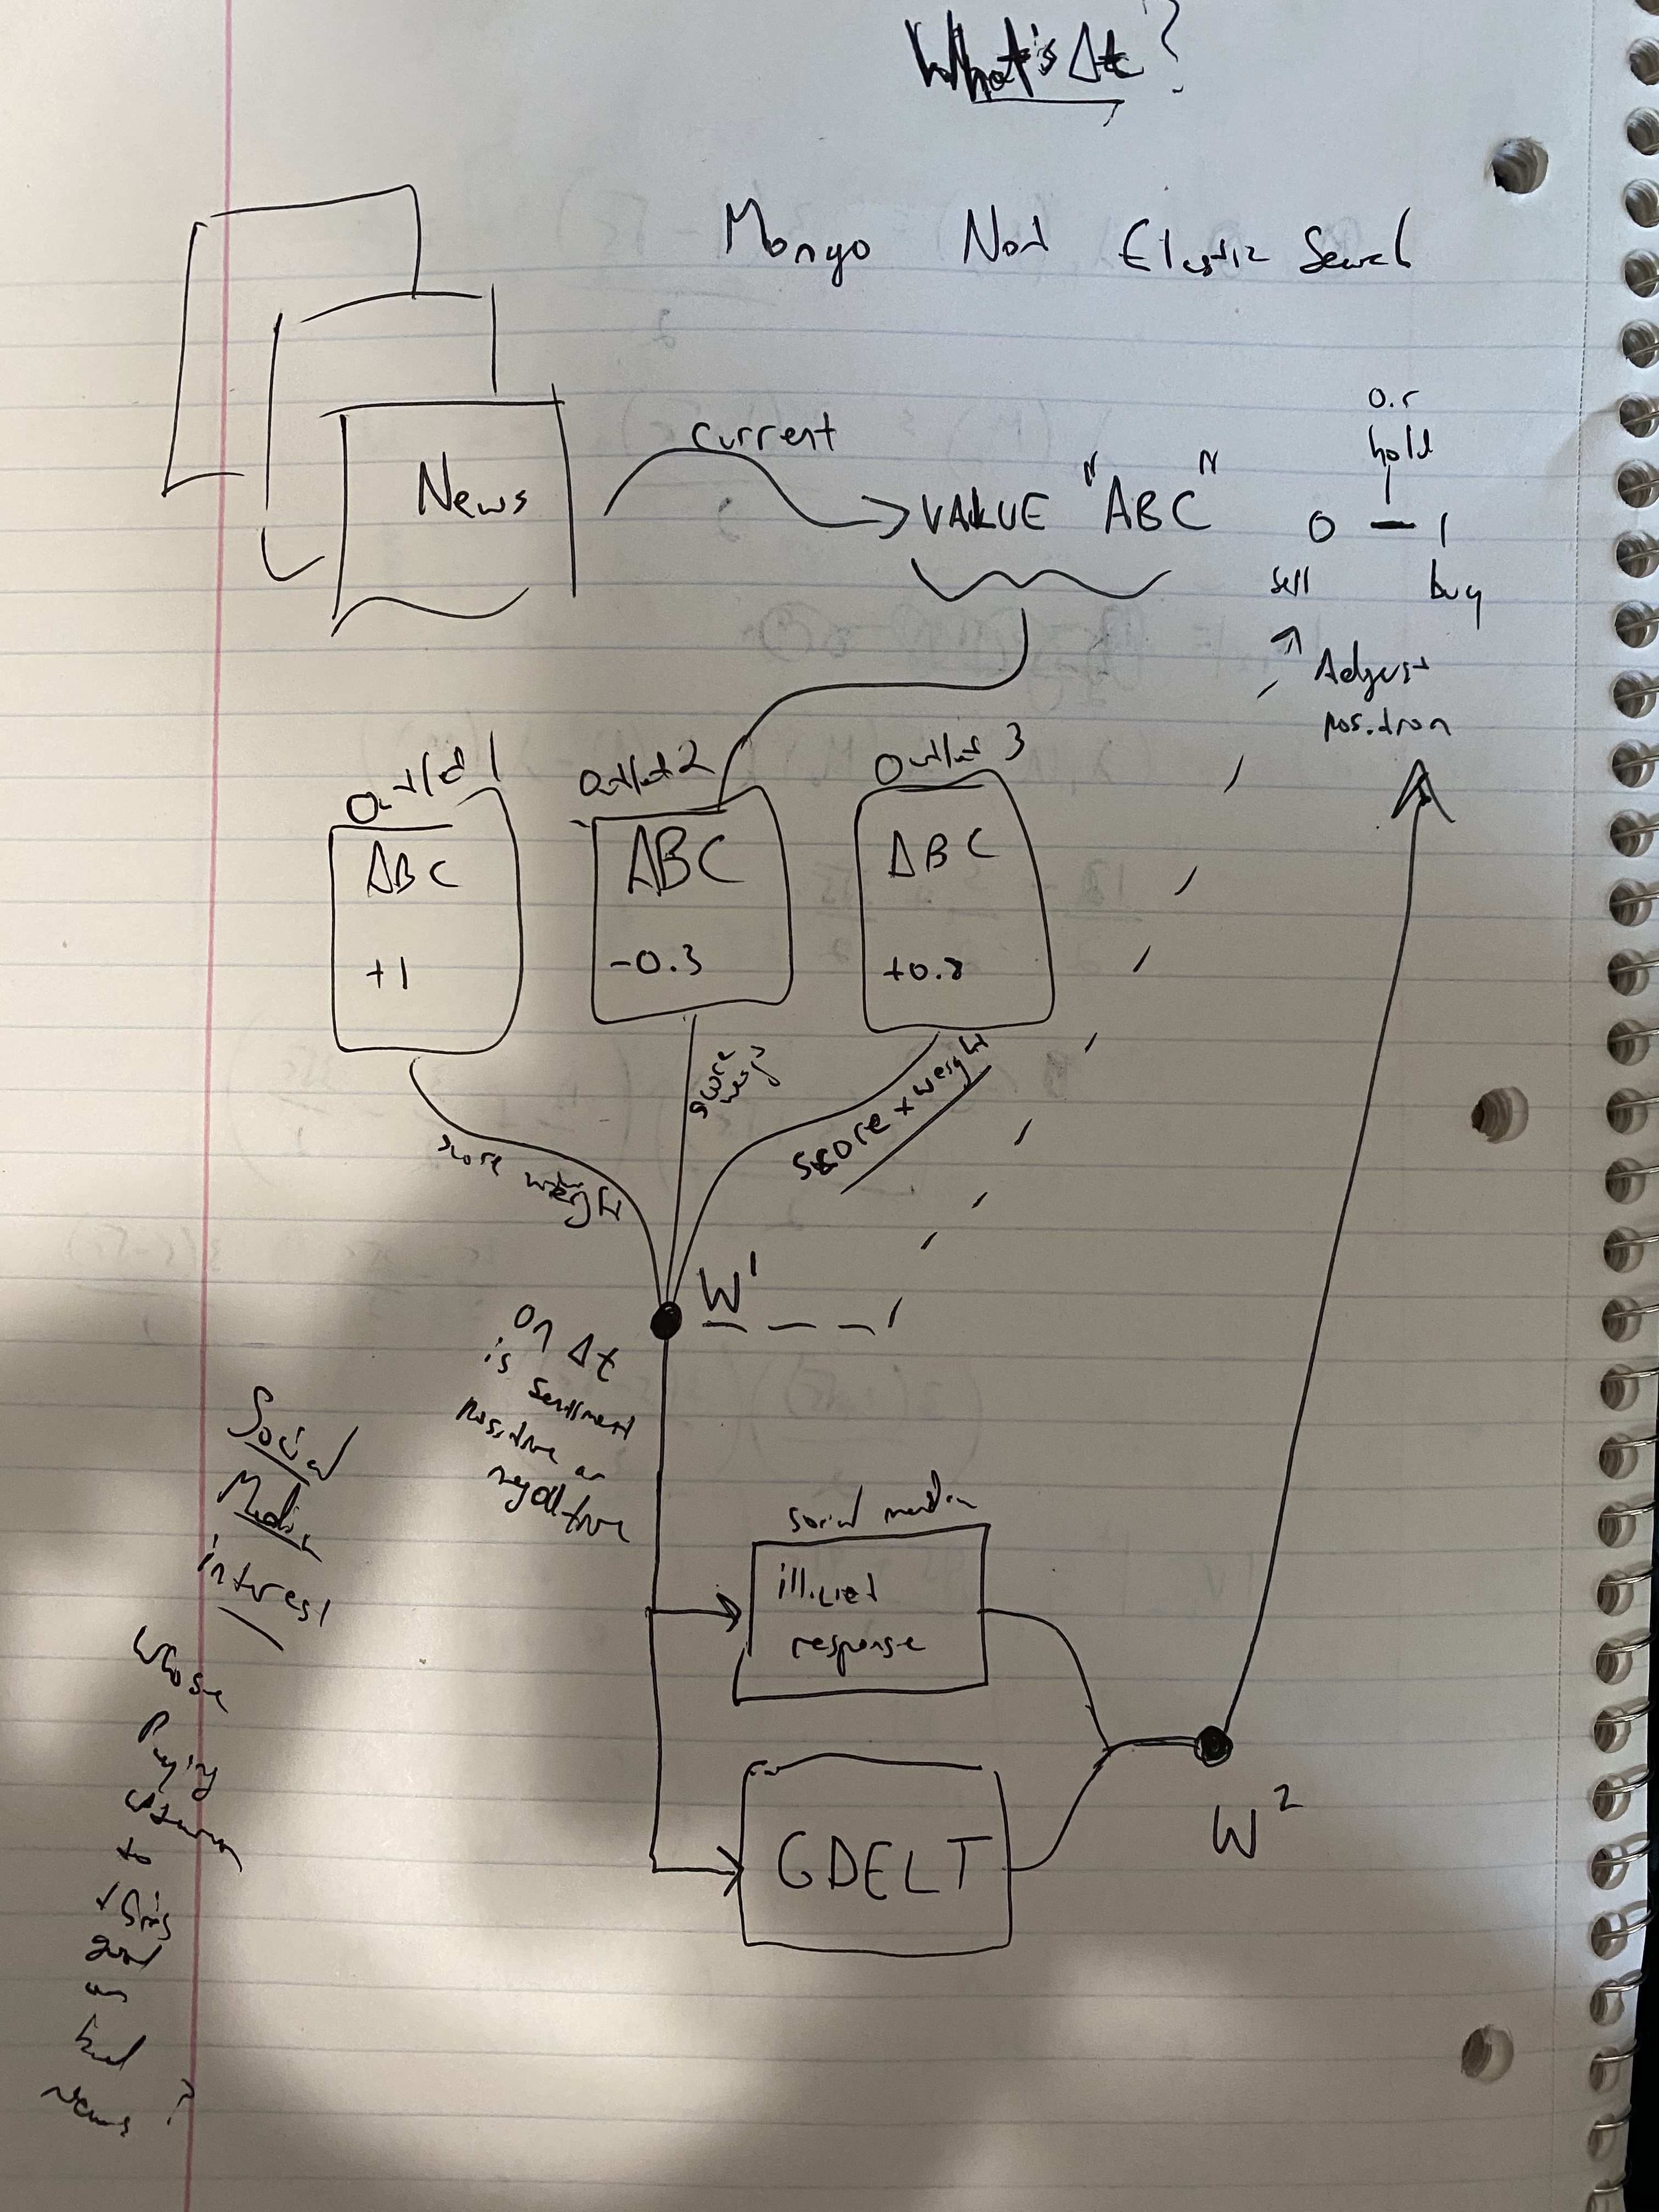 What's Δt?
Mongo Not Elastic Search
News
current
VALUE "ABC"
0.5
hold
0 — 1
sell buy
Adjust
position
Outlet 1
Outlet 2
Outlet 3
ABC
+1
ABC
-0.3
ABC
+0.8
score weight
score
weight
score x weight
W¹
On Δt
is
sentiment
positive or
negative
Social
Media
interest
Whose
Paying
attention
to
this
good
or
bad
news?
social media
illicied
response
GDELT
W²